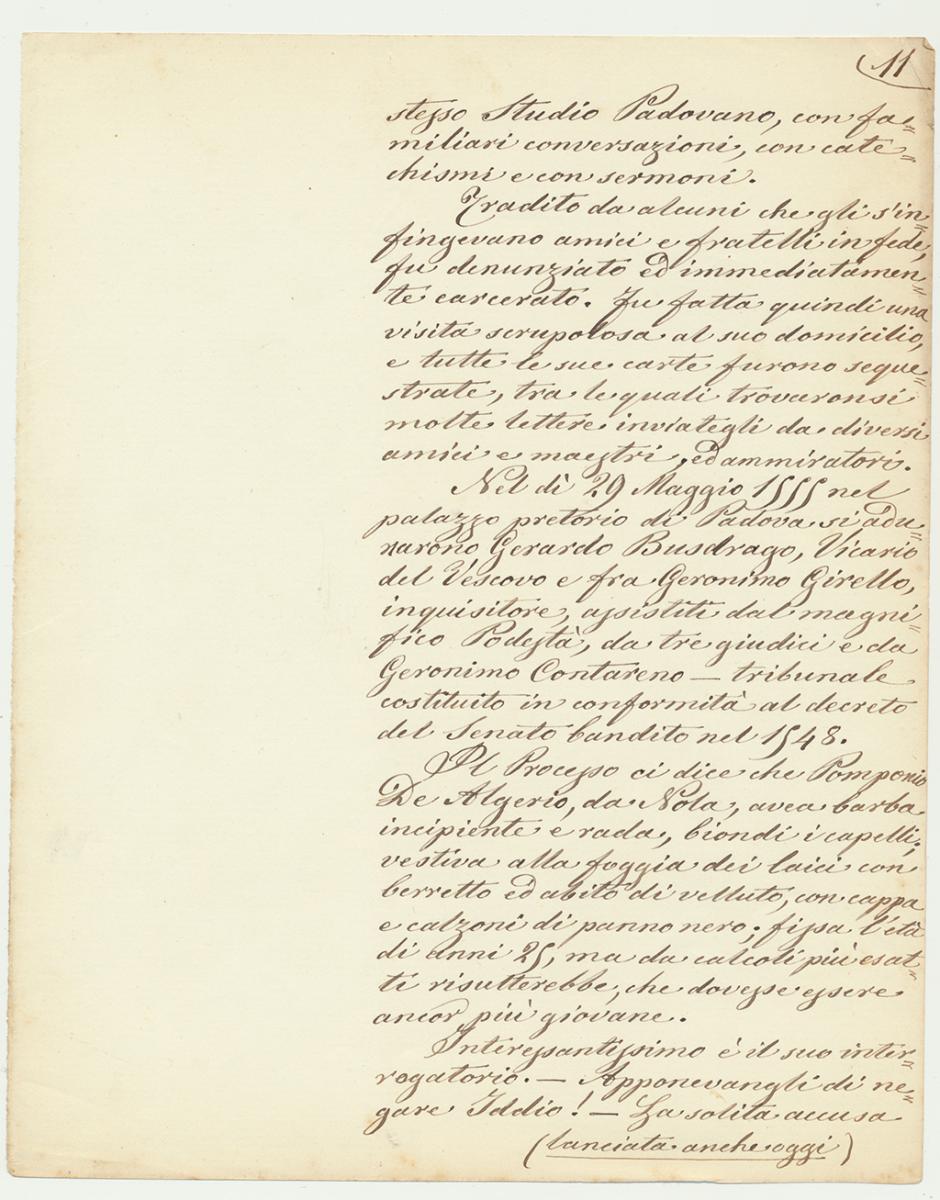 11
stesso Studio Padovano, con fa=
miliari conversazioni, con cate=
chismi e con sermoni.
Tradito da alcuni che gli s'in=
fingevano amici e fratelli in fede,
fu denunziato ed immediatamen=
te carcerato. Fu fatta quindi una
visita scrupolosa al suo domicilio,
e tutte le sue carte furono seque=
strate, tra le quali trovaronsi
molte lettere inviategli da diversi
amici e maestri, ed ammiratori.
Nel dì 29 Maggio 1555 nel
palazzo pretorio di Padova si adu=
narono Gerardo Busdrago, Vicario
del Vescovo e fra Geronimo Girello,
inquisitore, assistiti dal magni=
fico Podestà, da tre giudici e da
Geronimo Contareno — tribunale
costituito in conformità al decreto
del Senato bandito nel 1548.
Il Processo ci dice che Pomponio
De Algerio, da Nola, avea barba
incipiente e rada, biondi i capelli;
vestiva alla foggia dei laici con
berretto ed abito di velluto, con cappa
e calzoni di panno nero; fissa l'età
di anni 25, ma da calcoli più esat=
ti risutterebbe, che dovesse essere
ancor più giovane.
Interessantissimo è il suo inter=
rogatorio. — Apponevangli di ne=
gare Iddio! — La solita accusa
(lanciata anche oggi)